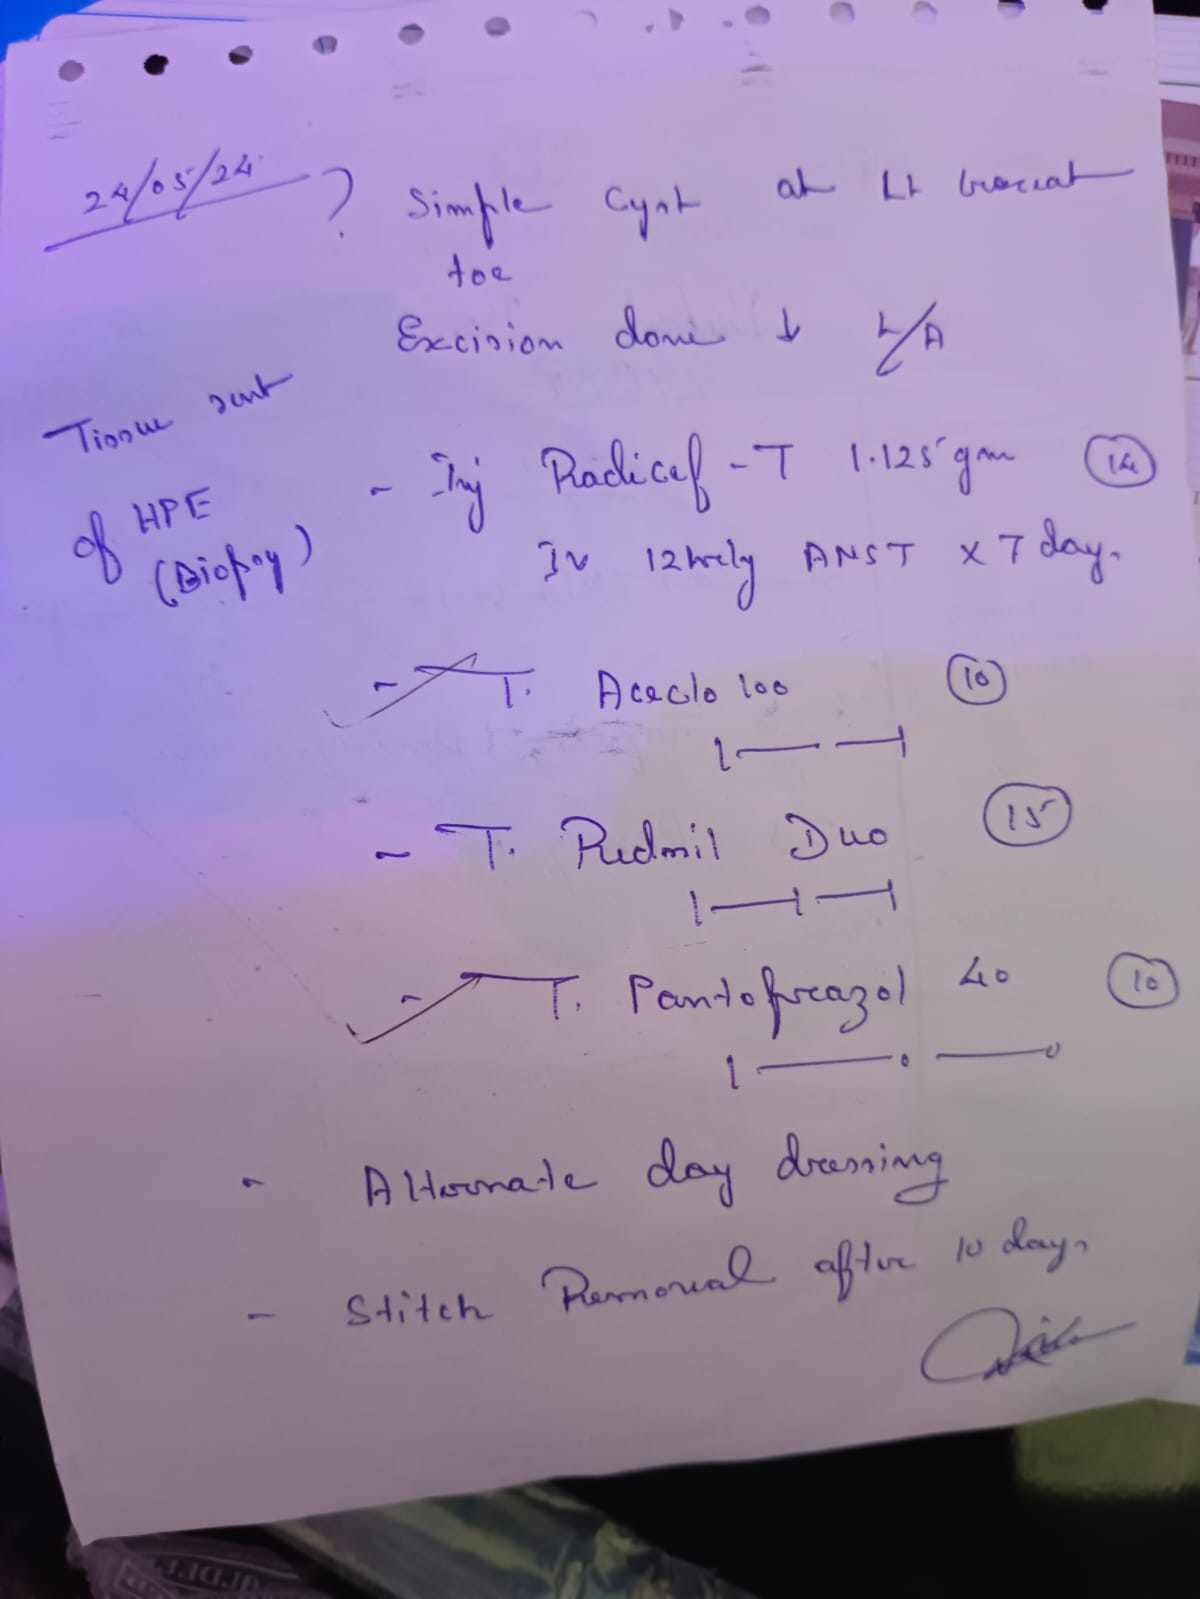 24/05/24
? Simple Cyst at Lt great
toe
Excision done ↓ L/A
Tissue sent
of HPE
(Biopsy)
- Inj Radicef-T 1.125 gm (14)
IV 12hrly ANST x 7 days
- T. Aceclo 100 (10)
1 — — 1
- T. Redmil Duo (15)
1 — 1 — 1
- T. Pantoprazol 40 (10)
1 — 0 — 0
- Alternate day dressing
- Stitch Removal after 10 days